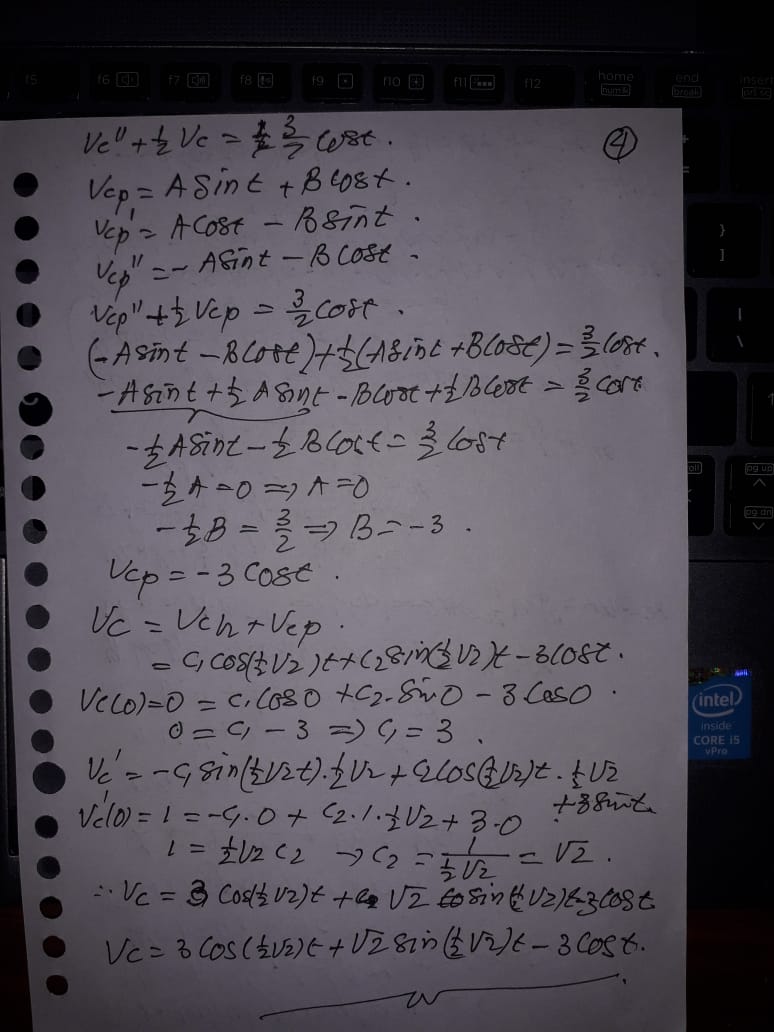 f5 f6 f7 f8 f9 f10 f11 f12 home end insert
num break prt sc
④
Vc'' + ½ Vc = 3/2 Cost.
Vcp = A Sint + B Cost.
Vcp' = A Cost - B Sint.
Vcp'' = - A Sint - B Cost.
Vcp'' + ½ Vcp = 3/2 Cost.
(-A Sint - B Cost) + ½ (A Sint + B Cost) = 3/2 Cost.
- A Sint + ½ A Sint - B Cost + ½ B Cost = 3/2 Cost
- ½ A Sint - ½ B Cost = 3/2 Cost
- ½ A = 0 => A = 0
- ½ B = 3/2 => B = -3.
Vcp = -3 Cost.
Vc = Vch + Vcp.
= C₁ Cos(½√2)t + C₂ Sin(½√2)t - 3 Cost.
Vc(0) = 0 = C₁ Cos0 + C₂. Sin0 - 3 Cos0.
0 = C₁ - 3 => C₁ = 3.
Vc' = -C₁ Sin(½√2t).½√2 + C₂ Cos(½√2)t.½√2
+ 3 Sint.
Vc'(0) = 1 = -C₁.0 + C₂.1.½√2 + 3.0
1 = ½√2 C₂ -> C₂ = 1/(½√2) = √2.
∴ Vc = 3 Cos(½√2)t + √2 Sin(½√2)t - 3 Cost
Vc = 3 Cos(½√2)t + √2 Sin(½√2)t - 3 Cost.
}
]
|
\
pg up
pg dn
intel
inside
CORE i5
vPro